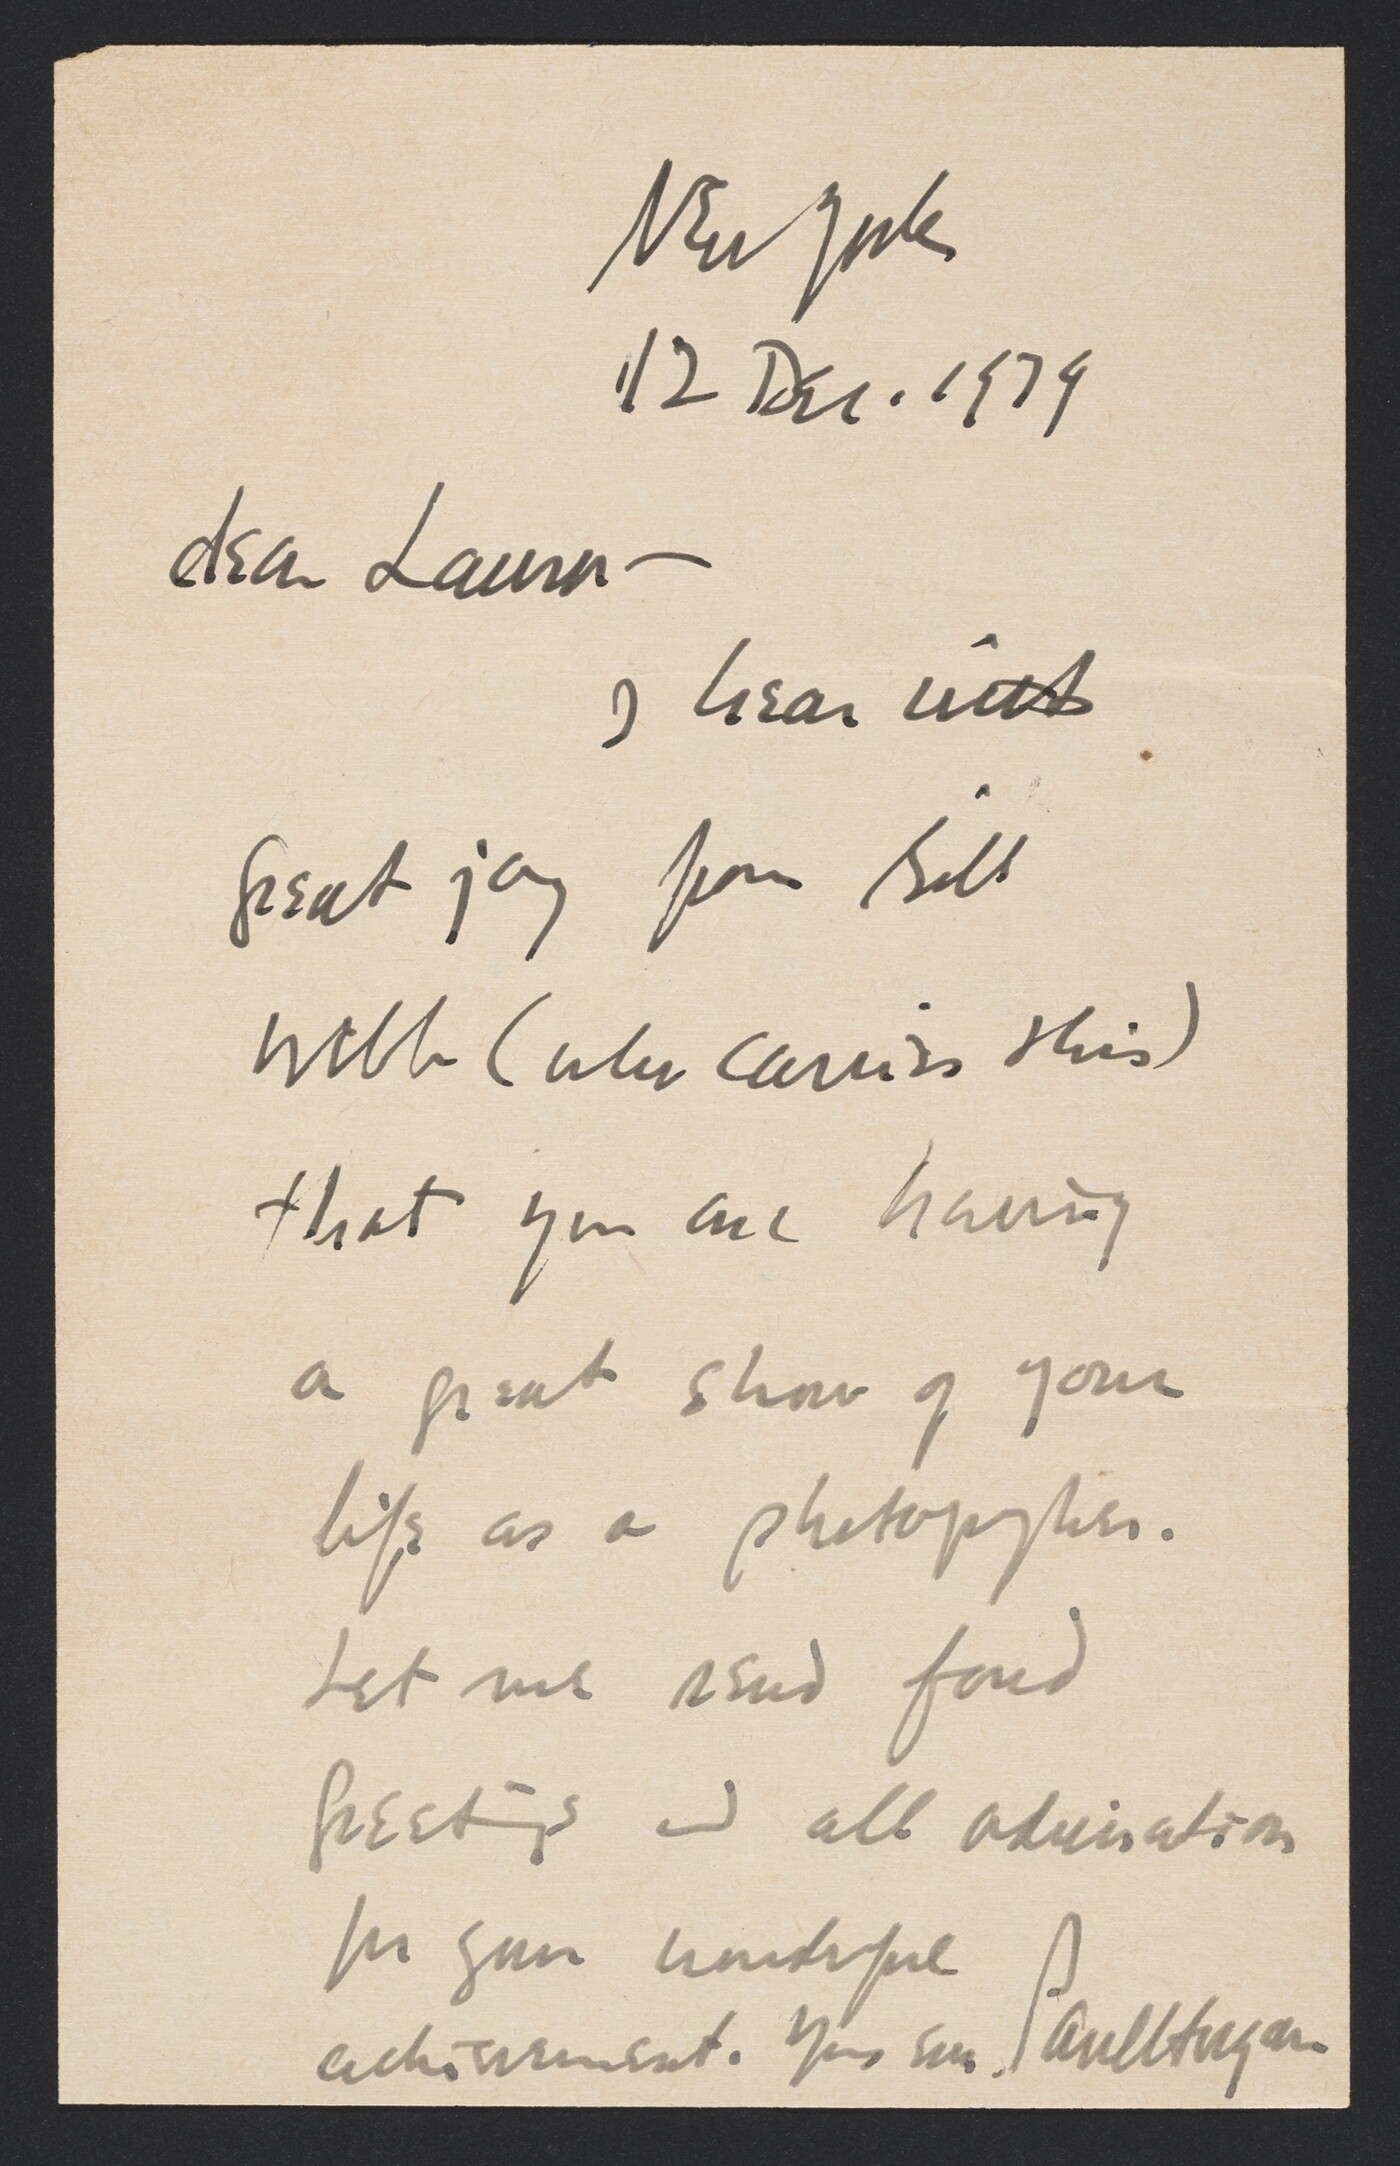 New York
12 Dec. 1979
dear Laura —
I hear with
great joy from Bill
Webb (who carries this)
that you are having
a great show of your
life as a photographer.
Let me send fond
greetings and all admiration
for your wonderful
achievement. Yours ever. Paul Horgan